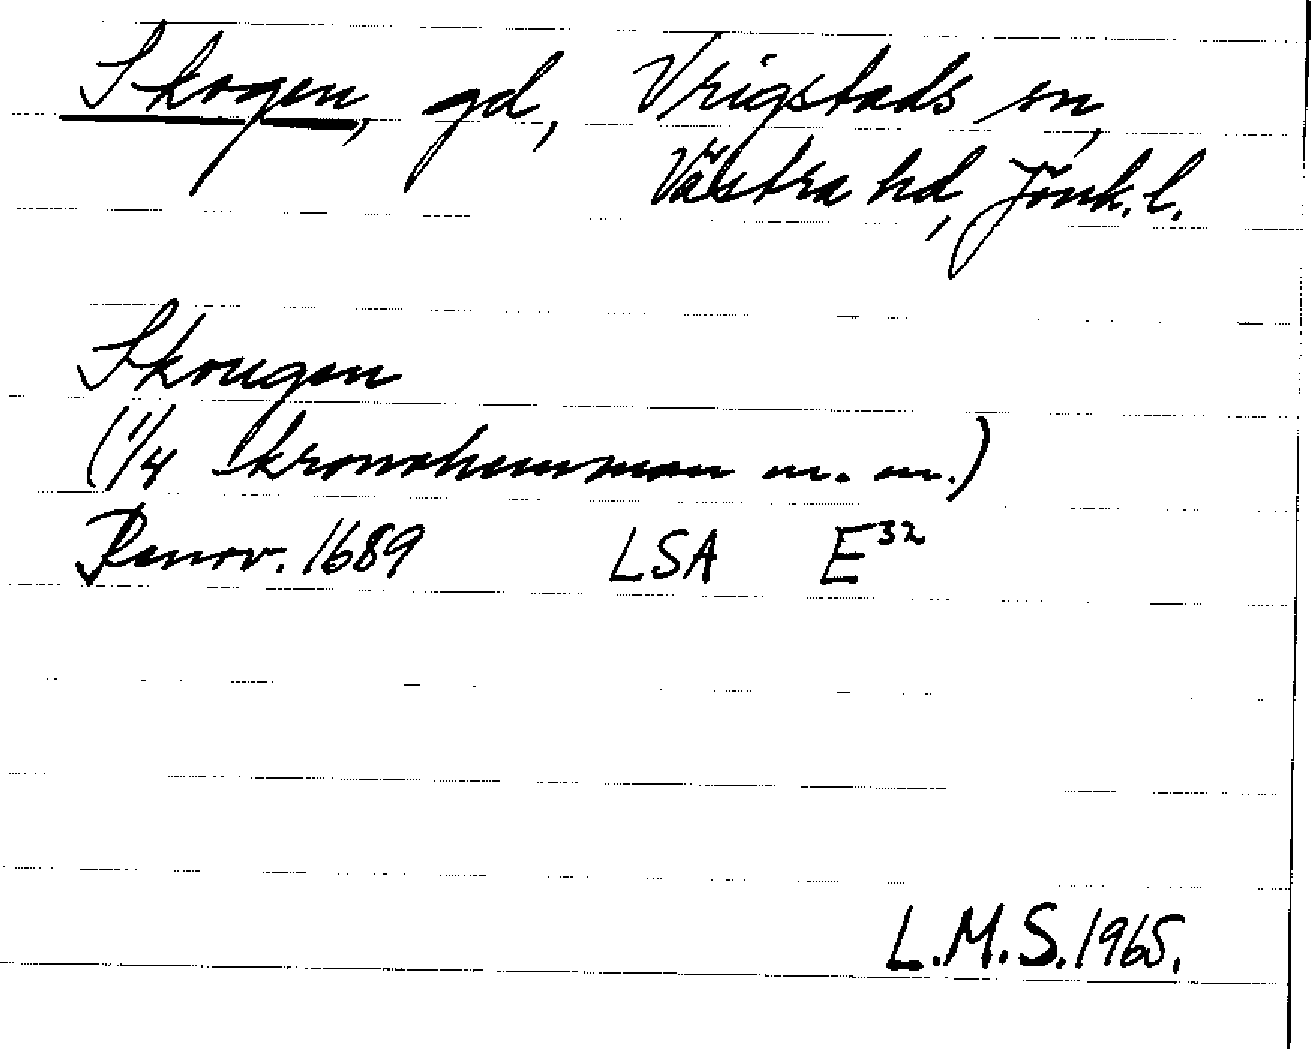 Skogen, gd, Vrigstads sn,
Västra hd, Jönk. l.
Skougen
(1/4 kronohemman m. m.)
Renov. 1689 LSA E32
L.M.S. 1965.